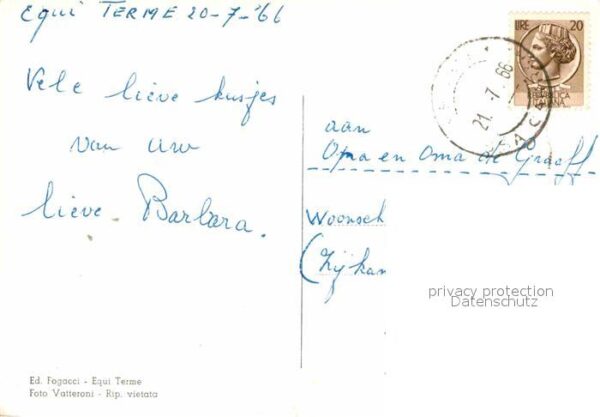 Equi TERME 20-7-'66
Vele lieve kusjes
van uw
lieve Barbara.
LIRE 20
21.7.66
aan
Opa en Oma de Graaff
Woonsch
(Zijkan
privacy protection
Datenschutz
Ed. Fogacci - Equi Terme
Foto Vatteroni - Rip. vietata